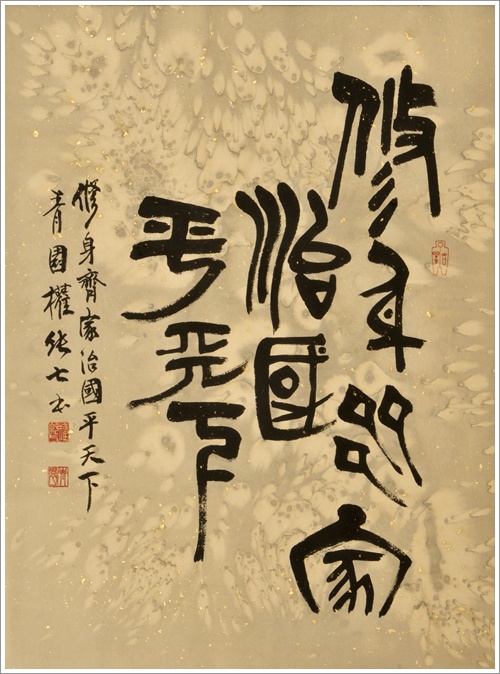 修身齊家
治國
平天下
修身齊家治國平天下
青園權 七書